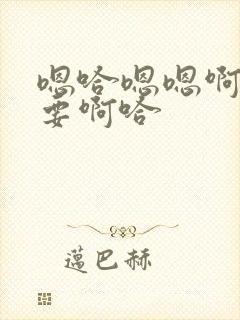 嗯哈嗯嗯啊
要啊哈
蔼巴赫